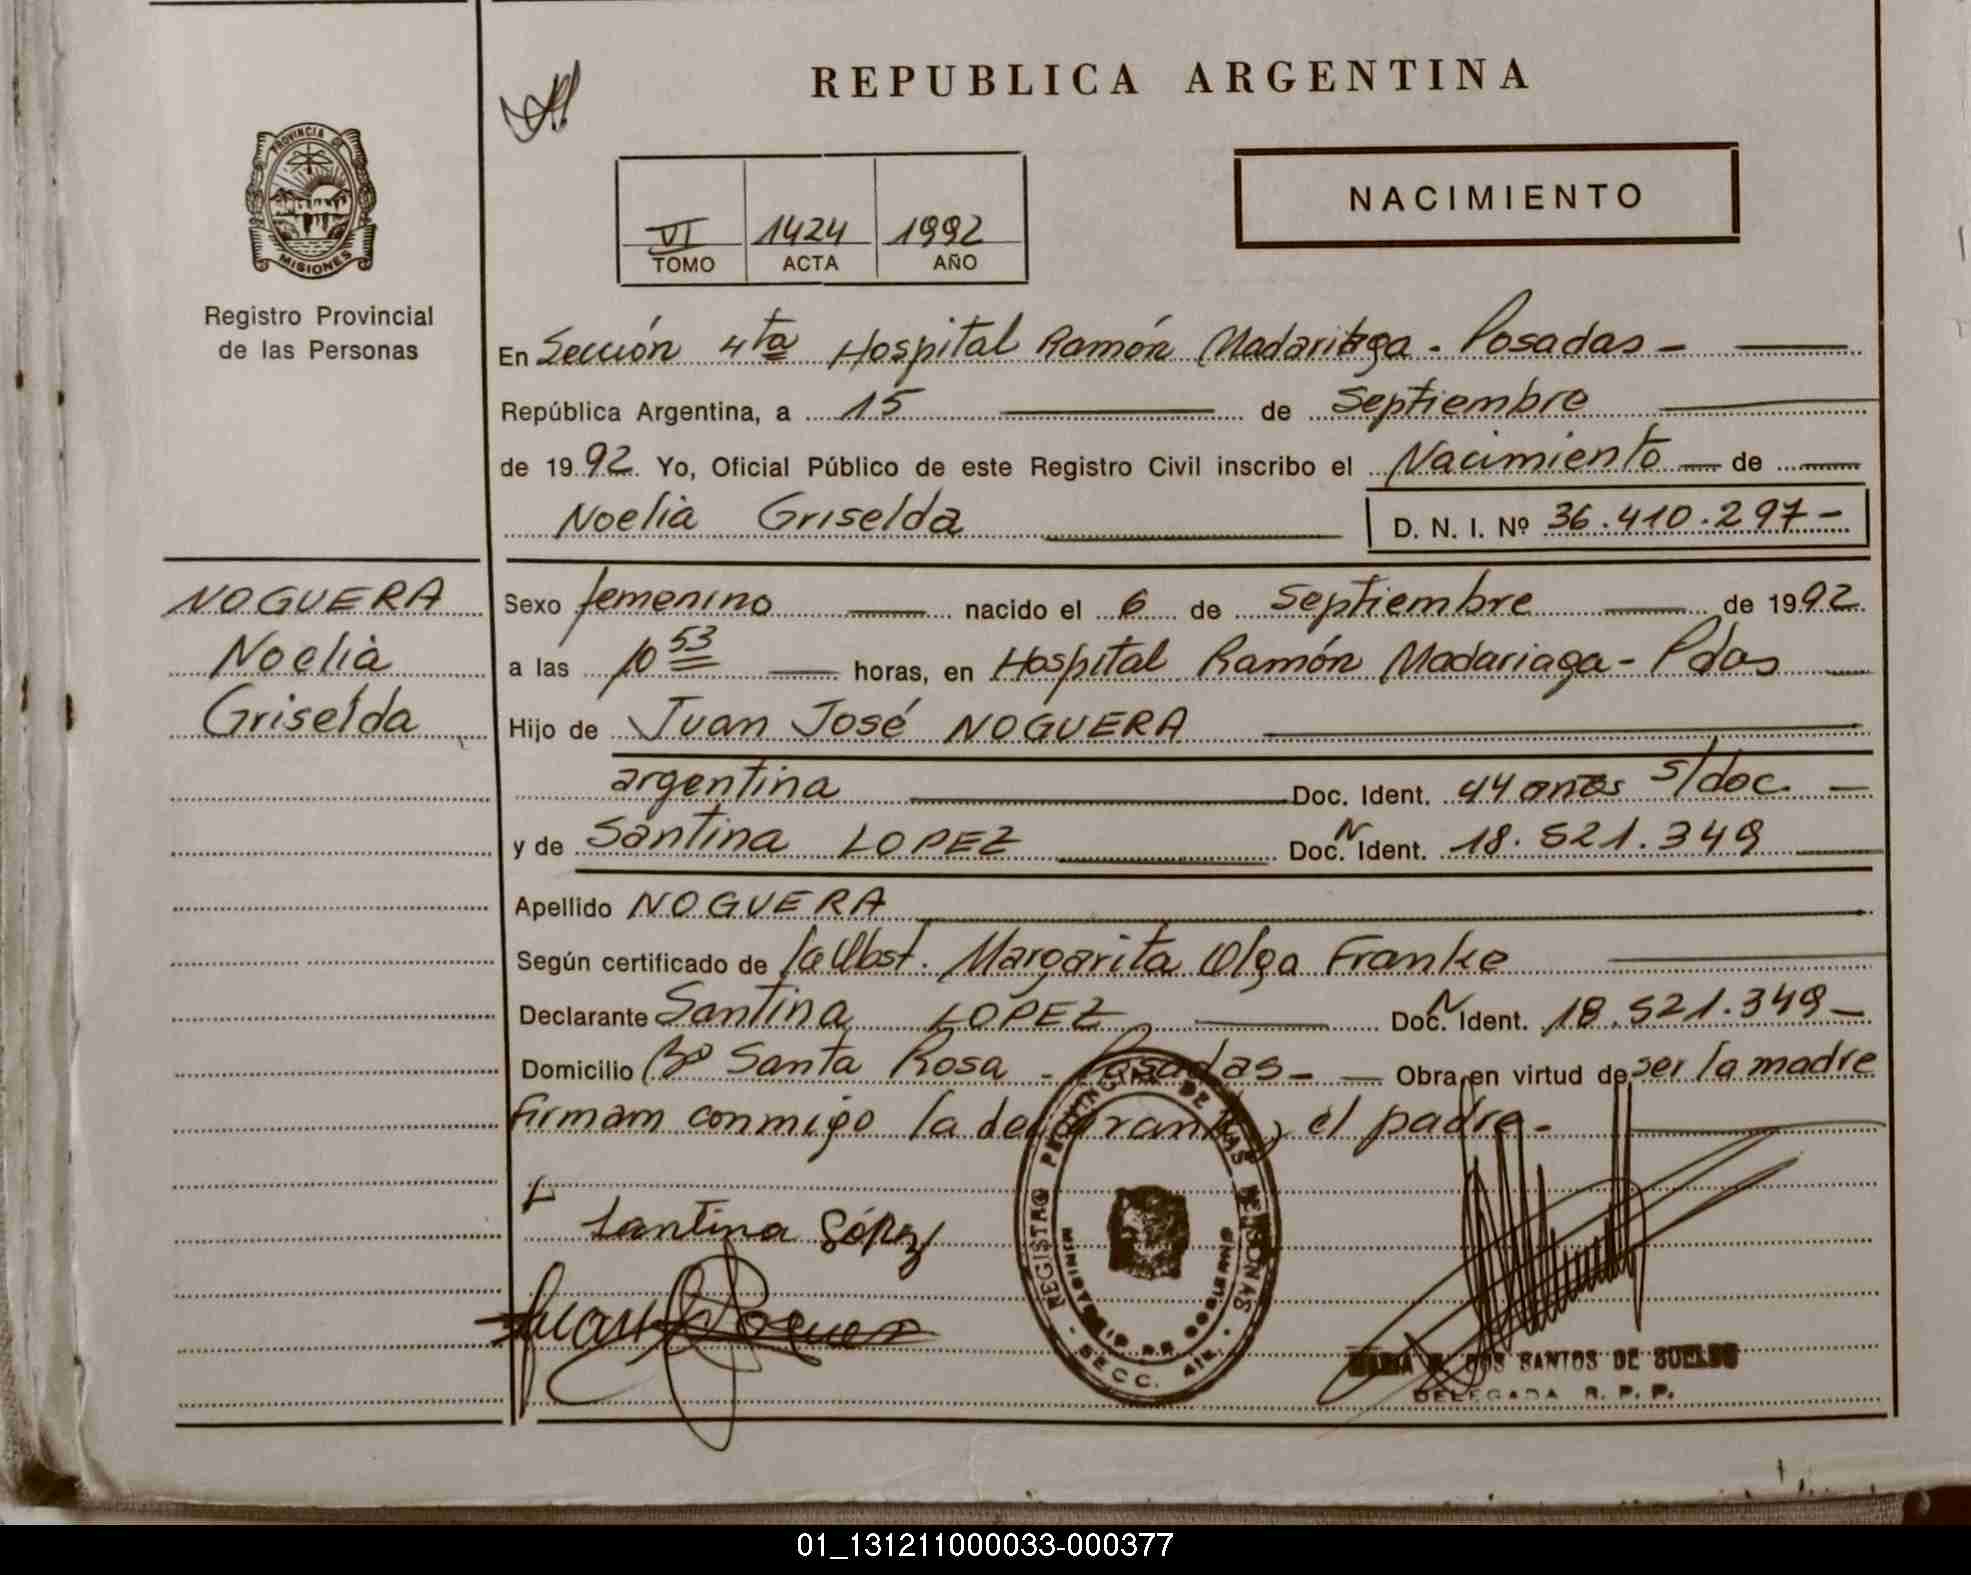 REPUBLICA ARGENTINA
PROVINCIA DE
MISIONES
Registro Provincial
de las Personas
VI 1424 1992
TOMO ACTA AÑO
NACIMIENTO
En Sección 4ta Hospital Ramón Madariaga - Posadas -
República Argentina, a 15 de Septiembre
de 1992. Yo, Oficial Público de este Registro Civil inscribo el Nacimiento de
Noelia Griselda D. N. I. Nº 36.410.297-
NOGUERA
Noelia
Griselda
Sexo femenino nacido el 6 de Septiembre de 1992.
a las 10 53 horas, en Hospital Ramón Madariaga - Pdas
Hijo de Juan José NOGUERA
argentina Doc. Ident. 44 años s/doc. -
y de Santina LOPEZ Doc. N Ident. 18.521.349
Apellido NOGUERA
Según certificado de la Obst. Margarita Olga Franke
Declarante Santina LOPEZ Doc. N Ident. 18.521.349-
Domicilio Bº Santa Rosa - Posadas - Obra en virtud de ser la madre
firmam conmigo la declarante y el padre.-
Santina López
REGISTRO PROVINCIAL DE LAS PERSONAS
MINISTERIO DE GOBIERNO
SECC. 4ta.
DOS SANTOS DE
DELEGADA R. P. P.
01_131211000033-000377